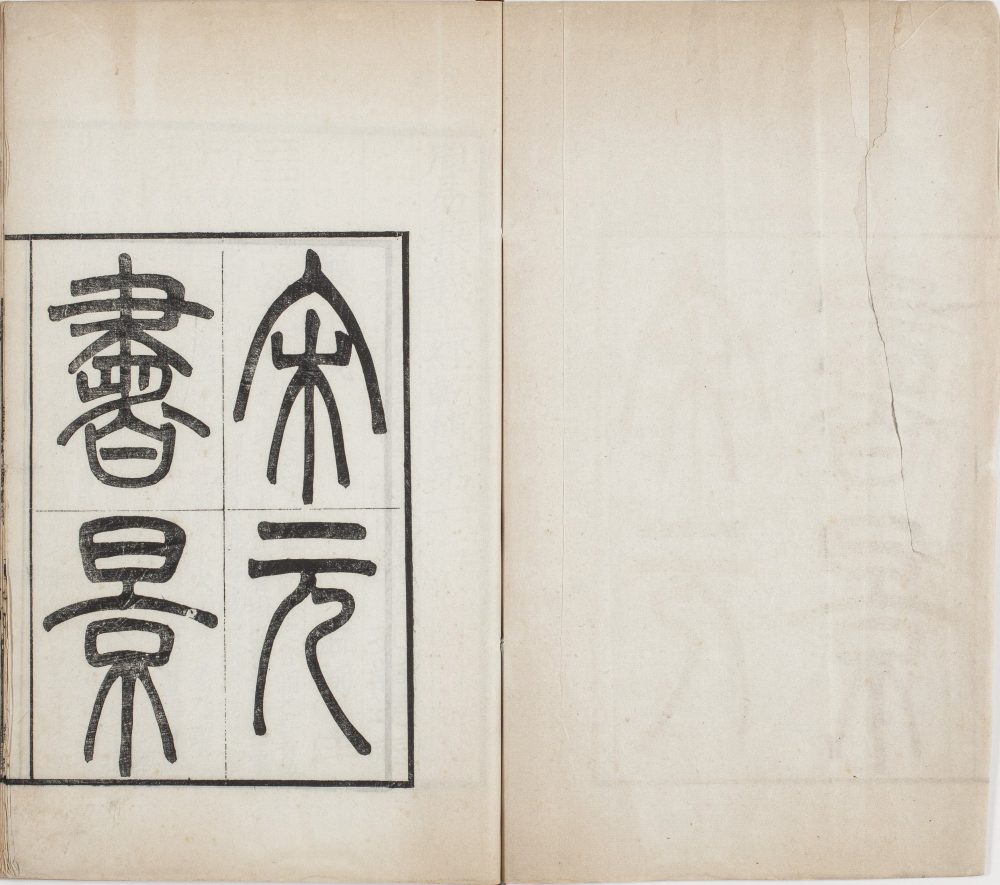 宋元
書景